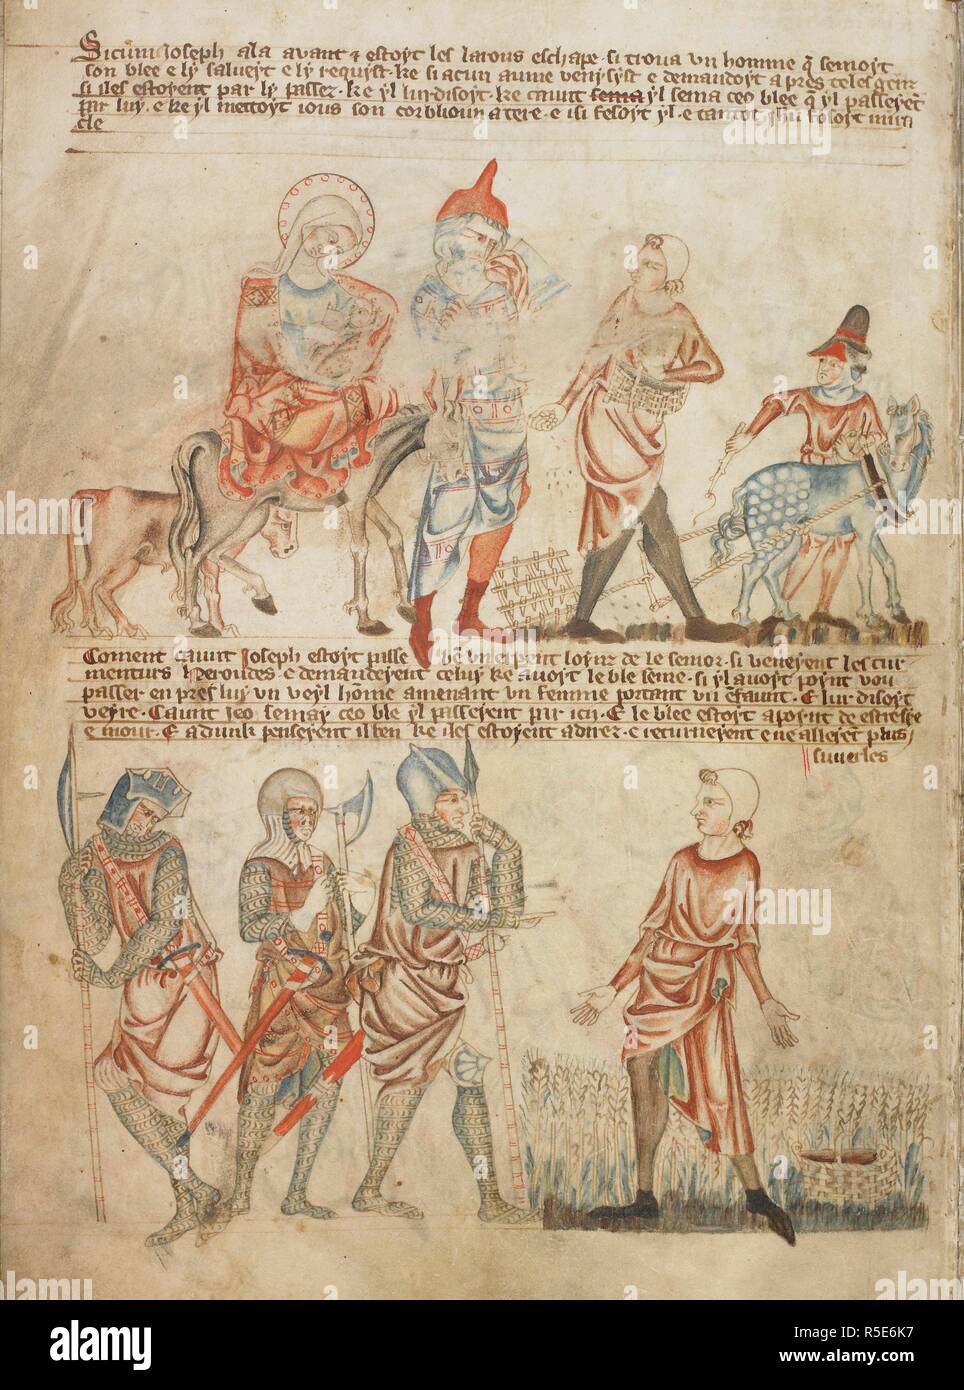 Sicum Joseph ala avant & estoyt les larons eschape · si trova un homme q̄ semoyt
son blee e ly salueyt e ly requyst · ke si acun aume venysyst e demaudoyt apres
si iles estoyent par ly passez · ke yl lur disoyt · ke caunt sema yl sema ceo blee q̄ yl passeyent
par luy · e ke yl mettoyt sous son corblioun a tere · e isi fesoyt yl · e tantot ihu fesoyt mira
cle
Coment caunt Joseph estoyt passe bn̄ un arpent loynz de le semor · si veneyent les tur
menturs Heroudes · e demaudeyent celuy ke avoyt le ble seme · si yl avoyt poynt vou
passer en pres luy un veyl home amenant un femme portant un efaunt · E lur disoyt
veyre · Caunt jeo semay ceo ble yl passeyent par ici · E le blee estoyt apoynt de estre sye
e mour · E adunk penseyent il ben ke iles estoyent a direz · e returneyent e ne alleyet plus
suuerles
alamy
alamy
Image ID: R5E6K7
www.alamy.com